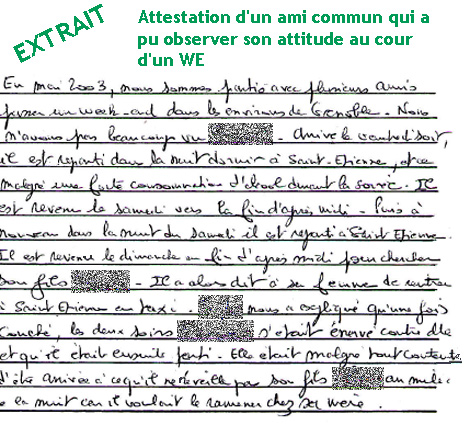 EXTRAIT
Attestation d'un ami commun qui a
pu observer son attitude au cour
d'un WE
En mai 2003, nous sommes partis avec plusieurs amis
passer un week-end dans les environs de Grenoble. Nous
n'avons pas beaucoup vu - Arrivé le vendredi soir,
il est reparti dans la nuit dormir à Saint-Etienne, et ce
malgré une forte consommation d'alcool durant la soirée. Il
est revenu le samedi vers la fin d'après midi - Puis à
nouveau dans la nuit du samedi il est reparti à Saint Etienne
Il est revenu le dimanche en fin d'après midi pour chercher
son fils - Il a alors dit à sa femme de rentrer
à Saint Etienne en taxi. nous a expliqué qu'une fois
couché, les deux soirs s'était énervé contre elle
et qu'il était ensuite parti. Elle était malgré tout contente
d'être arrivée à ce qu'il ne réveille pas son fils au milieu
de la nuit car il voulait le ramener chez sa mère.